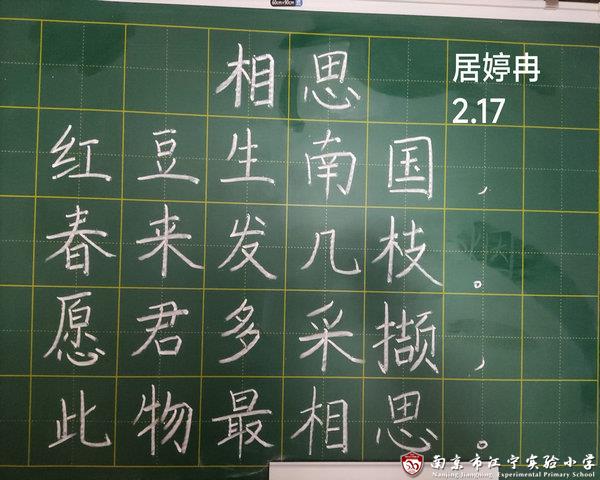 相思
居婷冉
2.17
红豆生南国，
春来发几枝。
愿君多采撷，
此物最相思。
南京市江宁实验小学
Nanjing Jiangning Experimental Primary School